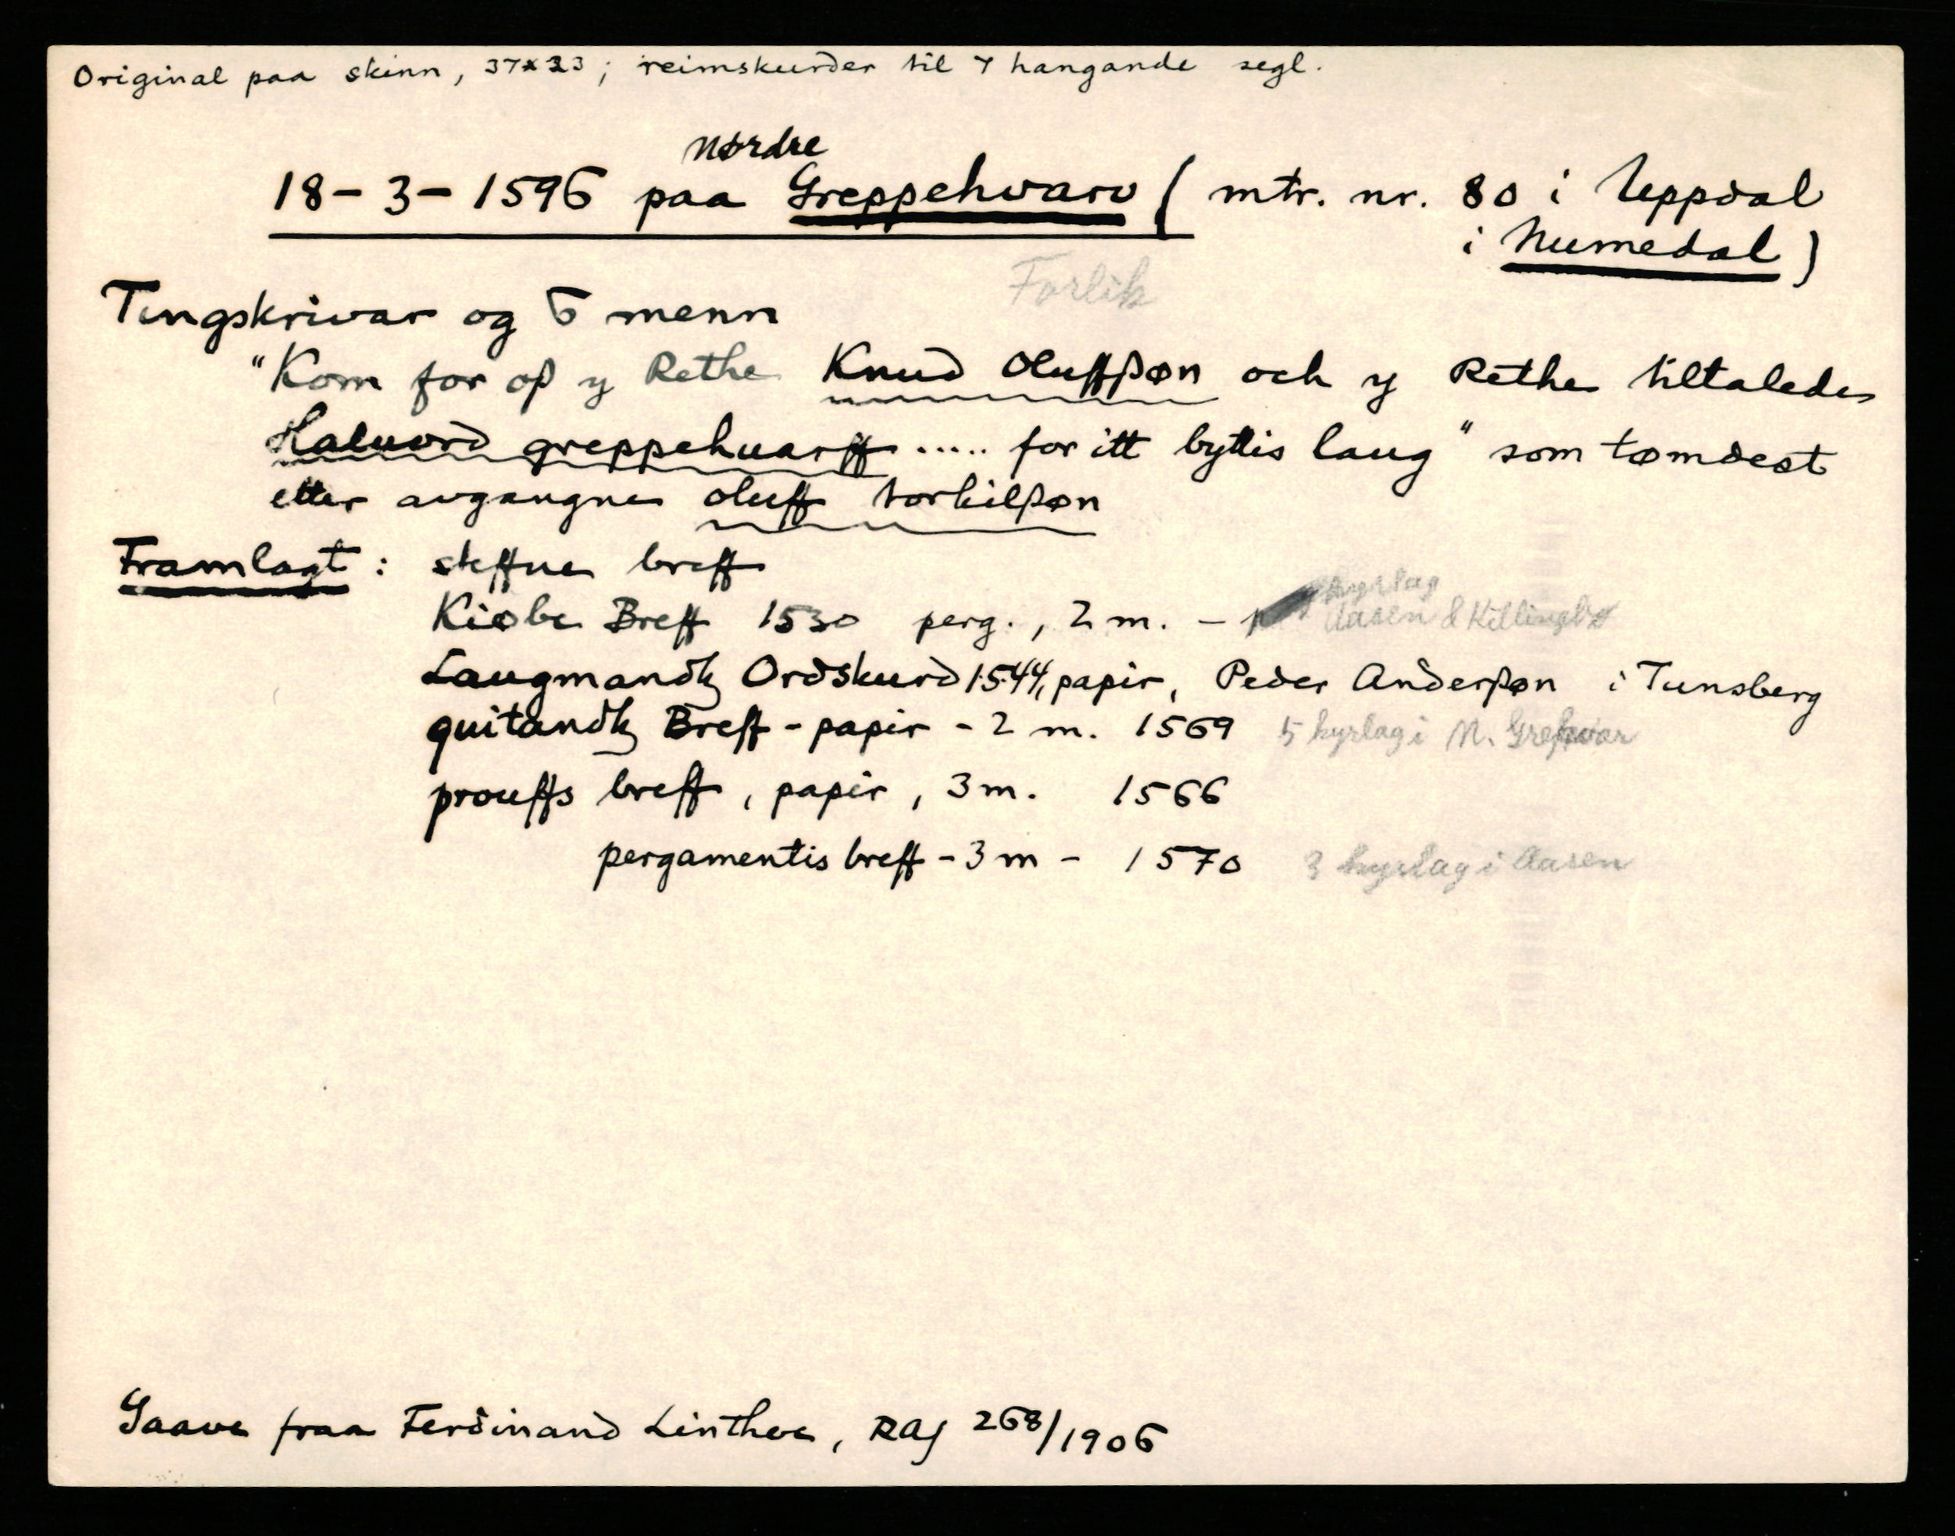 Original paa skinn, 37x23; reimskurder til 7 hangande segl.
Nørdre
18-3-1596 paa Greppehvarv (mtr. nr. 80 i Uppdal
i Numedal)
Forlik
Tingskrivar og 6 menn
"Kom for oß y Rethe Knud Oluffßøn och y Rethe tiltalede
Haluord greppehuarff ..... for itt byttis laug" som tømdest
etter avgangne oluff torkilßøn
Framlagt: steffne breff
Kiøbe Breff 1530 perg., 2 m. -
kyrlag
Aasen & Killingbø
Laugmandz Ordskurd 1544, papir, Peder Anderßøn i Tunsberg
quitandz Breff - papir - 2 m. 1569 5 kyrlag i N. Grefvar
prouffs breff, papir, 3 m. 1566
pergamentis breff - 3 m - 1570 3 kyrlag i Aasen
Gaave fraa Ferdinand Linthoe, RAJ 268/1906